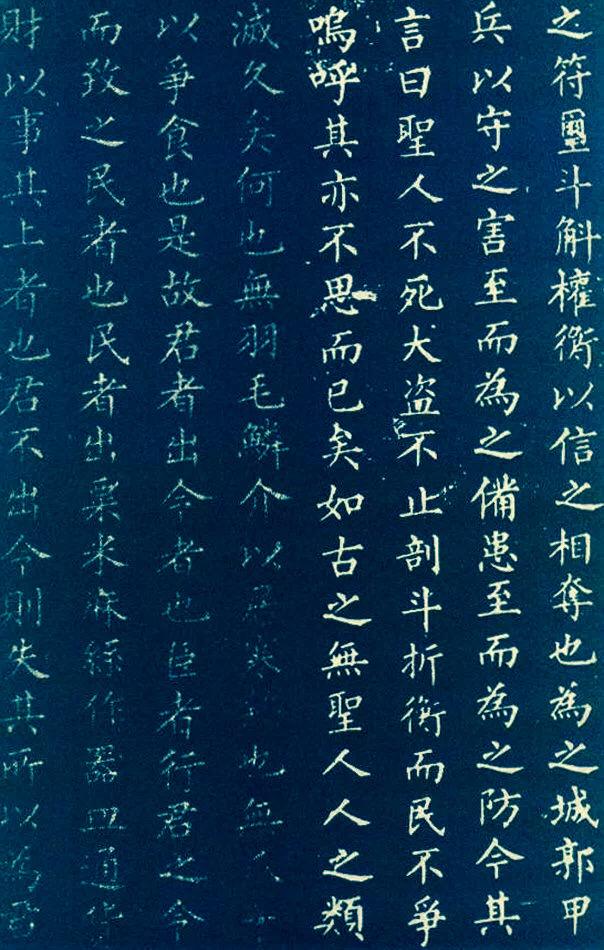 之符璽斗斛權衡以信之相奪也為之城郭甲
兵以守之害至而為之備患至而為之防今其
言曰聖人不死大盗不止剖斗折衡而民不爭
嗚呼其亦不思而已矣如古之無聖人人之類
滅久矣何也無羽毛鱗介以居寒熱也無爪牙
以爭食也是故君者出令者也臣者行君之令
而致之民者也民者出粟米麻絲作器皿通貨
財以事其上者也君不出令則失其所以為君